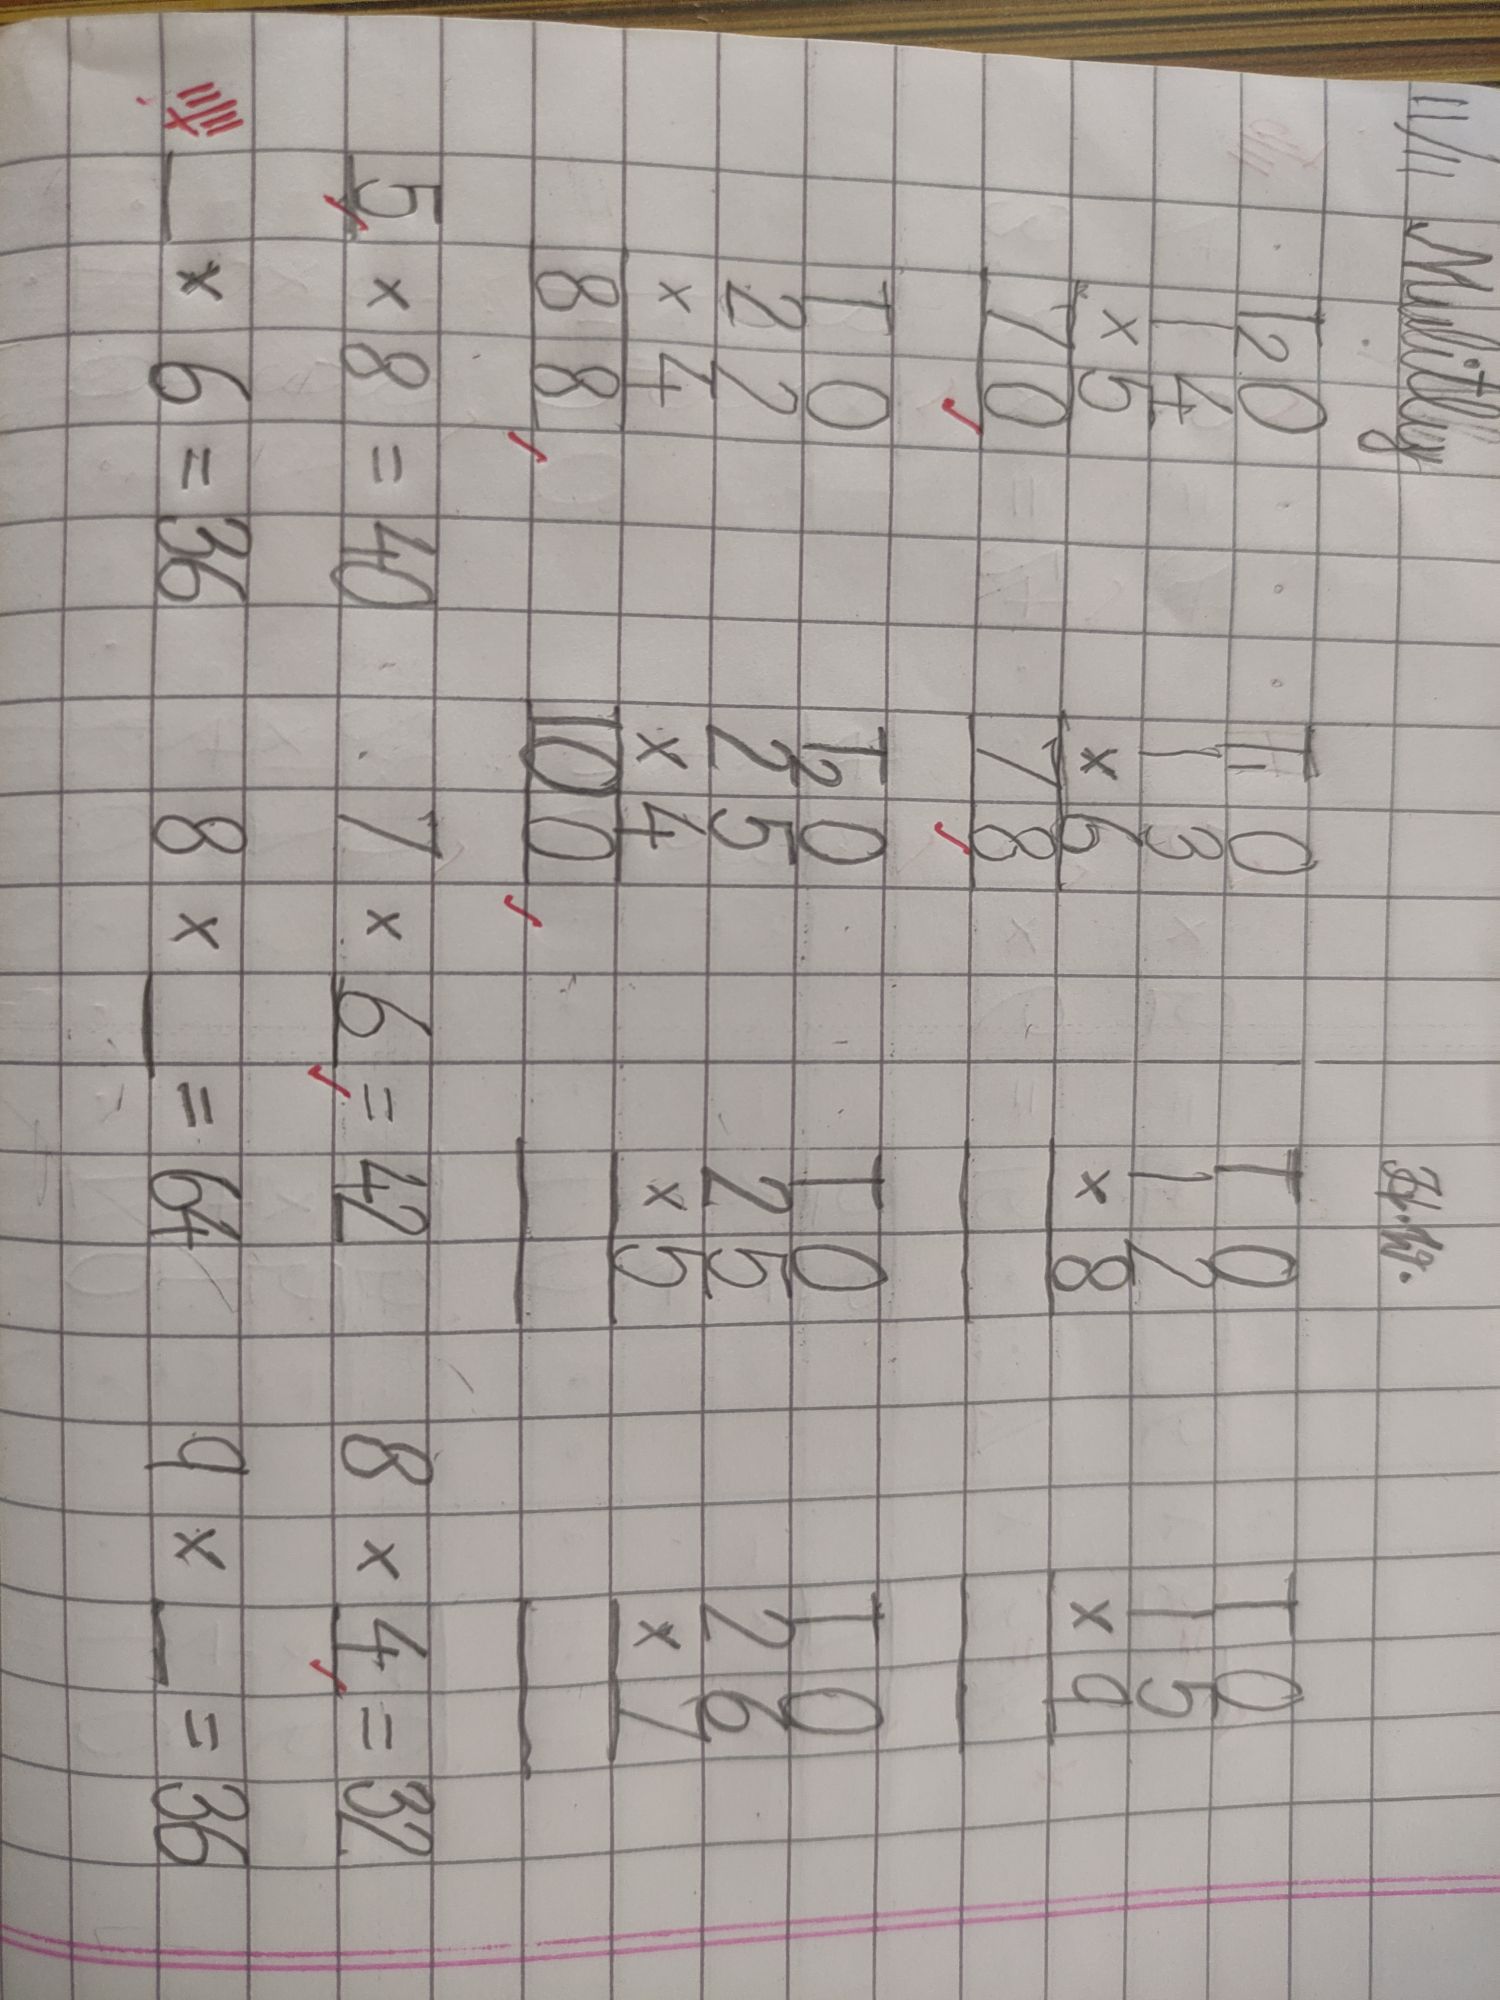 11/11 Mulitlly H.W.
T2 O T1 O T O T O
1 4 1 3 1 2 1 5
× 5 × 6 × 8 × 9
7 0 7 8
T O T2 O T O T O
2 2 2 5 2 5 2 6
× 4 × 4 × 5 × 7
8 8 10 0
5 × 8 = 40 7 × 6 = 42 8 × 4 = 32
_ × 6 = 36 8 × _ = 64 9 × _ = 36